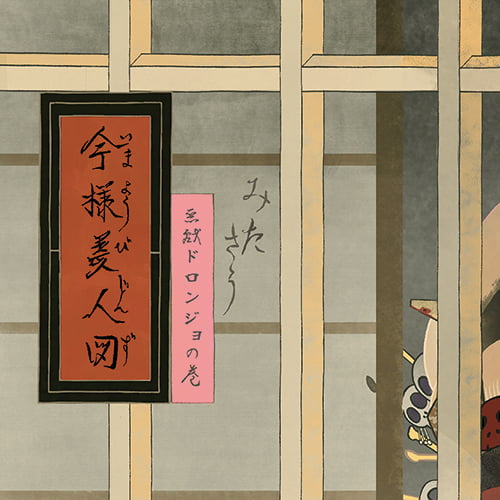 みた
さう
ドロンジョの巻
いまようびじんず
今様美人図